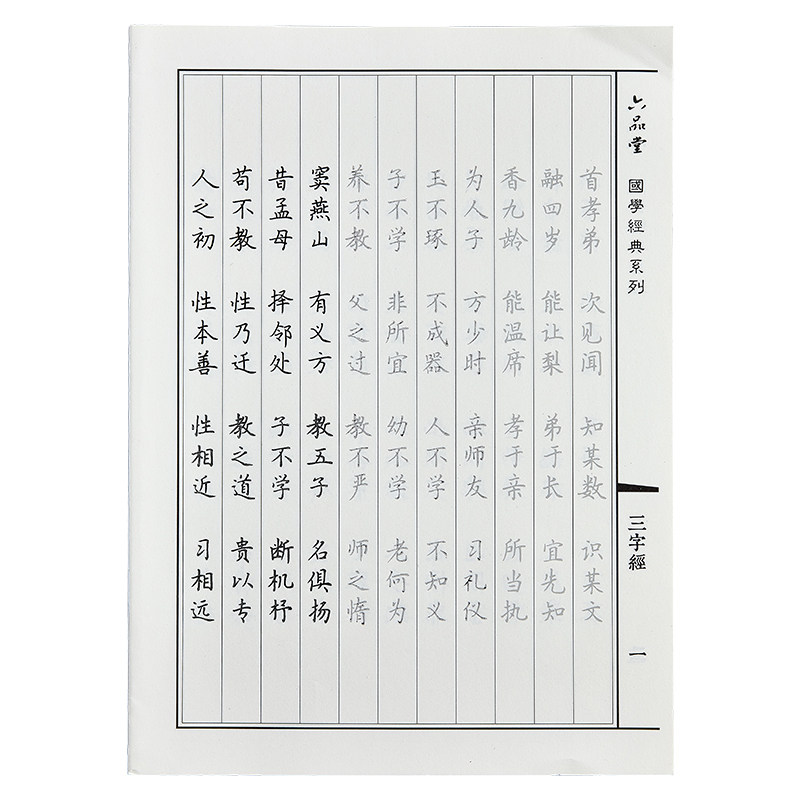 人之初 性本善 性相近 习相远
苟不教 性乃迁 教之道 贵以专
昔孟母 择邻处 子不学 断机杼
窦燕山 有义方 教五子 名俱扬
养不教 父之过 教不严 师之惰
子不学 非所宜 幼不学 老何为
玉不琢 不成器 人不学 不知义
为人子 方少时 亲师友 习礼仪
香九龄 能温席 孝于亲 所当执
融四岁 能让梨 弟于长 宜先知
首孝弟 次见闻 知某数 识某文
六品堂 國學經典系列
三字經
一